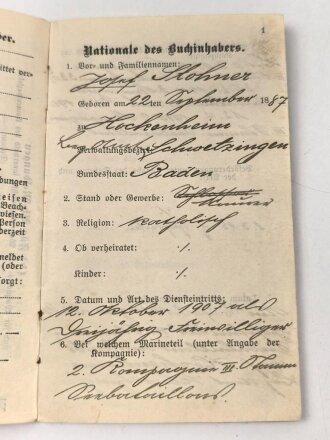 ber.
ittet ver-
1
Nationale des Buchinhabers.
1. Vor- und Familiennamen:
Josef Kohner
Geboren am 22ten September 1887
zu Hockenheim
Verwaltungsbezirk: Schwetzingen
Bundesstaat: Baden
2. Stand oder Gewerbe:
Maurer
3. Religion: katholisch
4. Ob verheiratet: ./.
Kinder: ./.
5. Datum und Art des Diensteintritts:
12. Oktober 1907 als
Dreijährig Freiwilliger
6. Bei welchem Marineteil (unter Angabe der
Kompagnie):
2. Kompagnie III. Stamm
Seebataillons.
dungen
eisen
Beach-
wiesen.
Person
derzeit
meldet
(oder
sorgt: